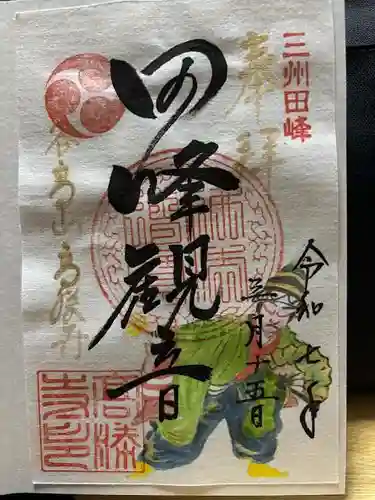 三州田峰
奉拝
令和七年
三月十五日
田峰観音
谷高山高勝寺